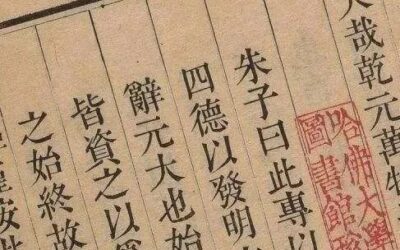 大哉乾元萬物
朱子曰此專以
四德以發明
辭元大也始
皆資之以爲
之始終故
哈佛大學
圖書館